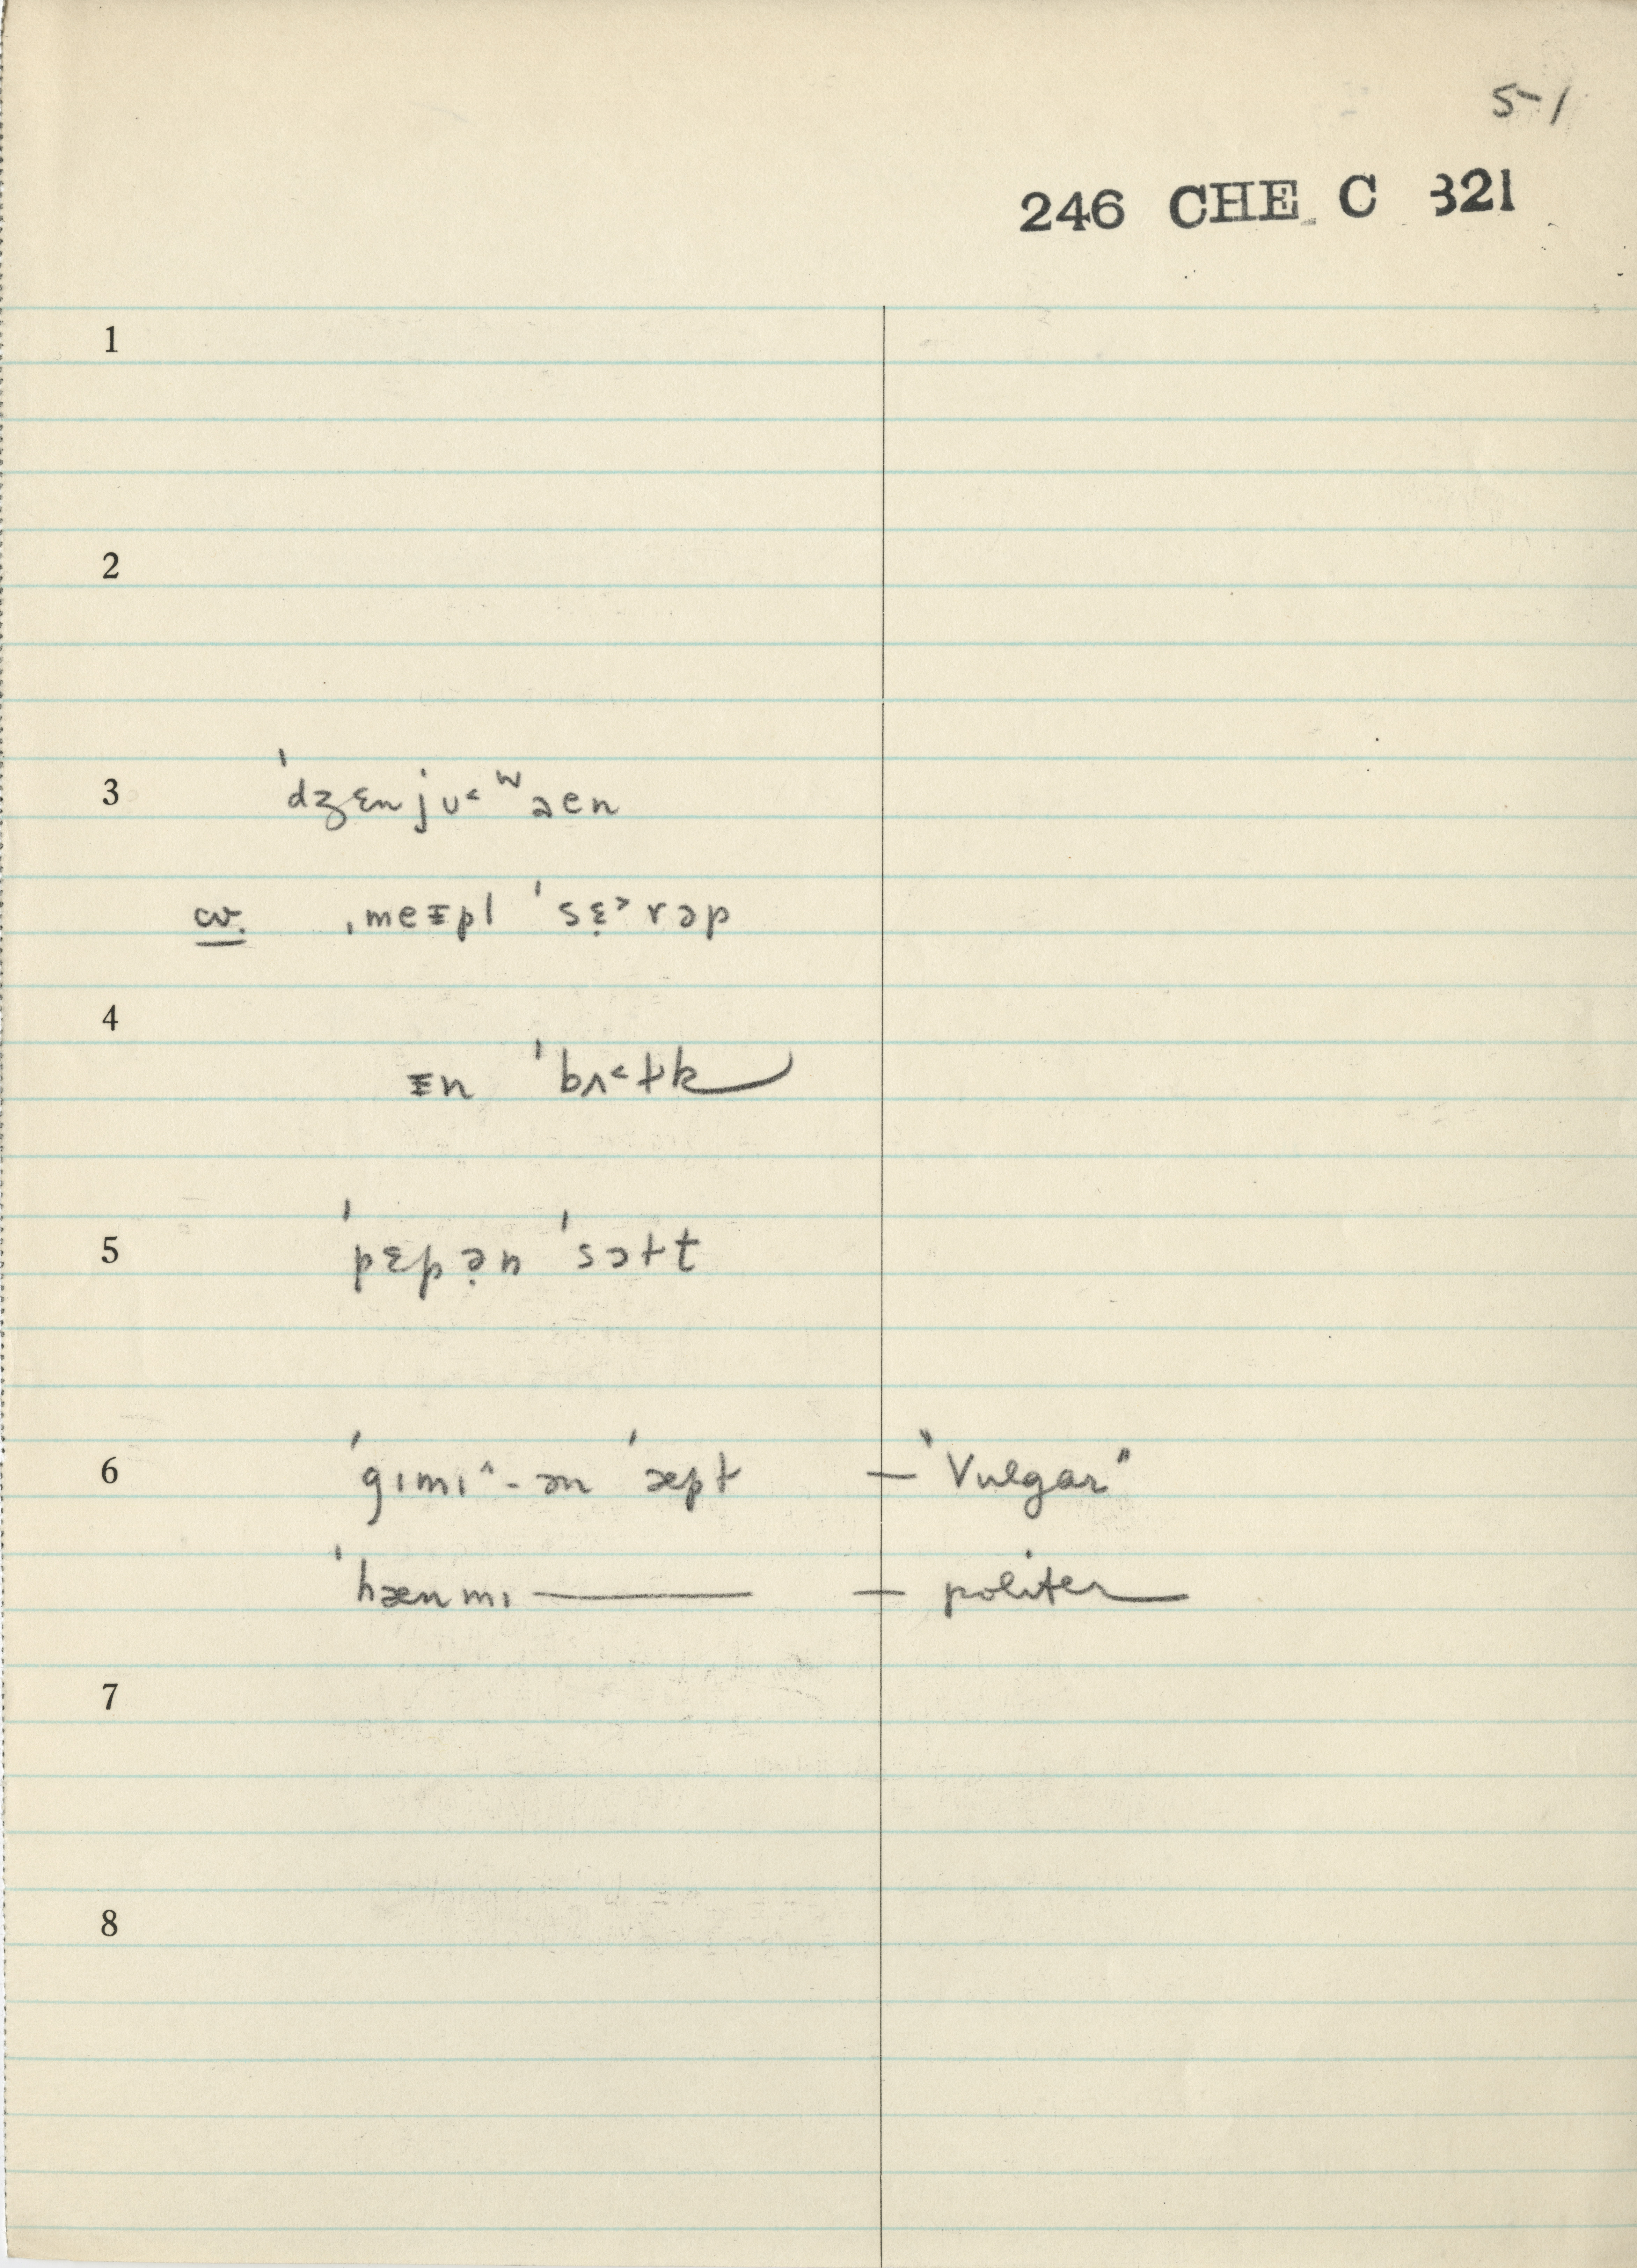 5-1
246 CHE C 321
1
2
3 ˈdʒɛnjʊ˂ʷəen
cv. ˌmeɪpl ˈsɛ̣˃rəp
4
ɪn ˈbʌ˂ɫk
5 ˈpɛpə̣n ˈsɔɫt
6 ˈgɪmɪ^-ən ˈæpɫ — "Vulgar"
ˈhænmɪ — — politer
7
8